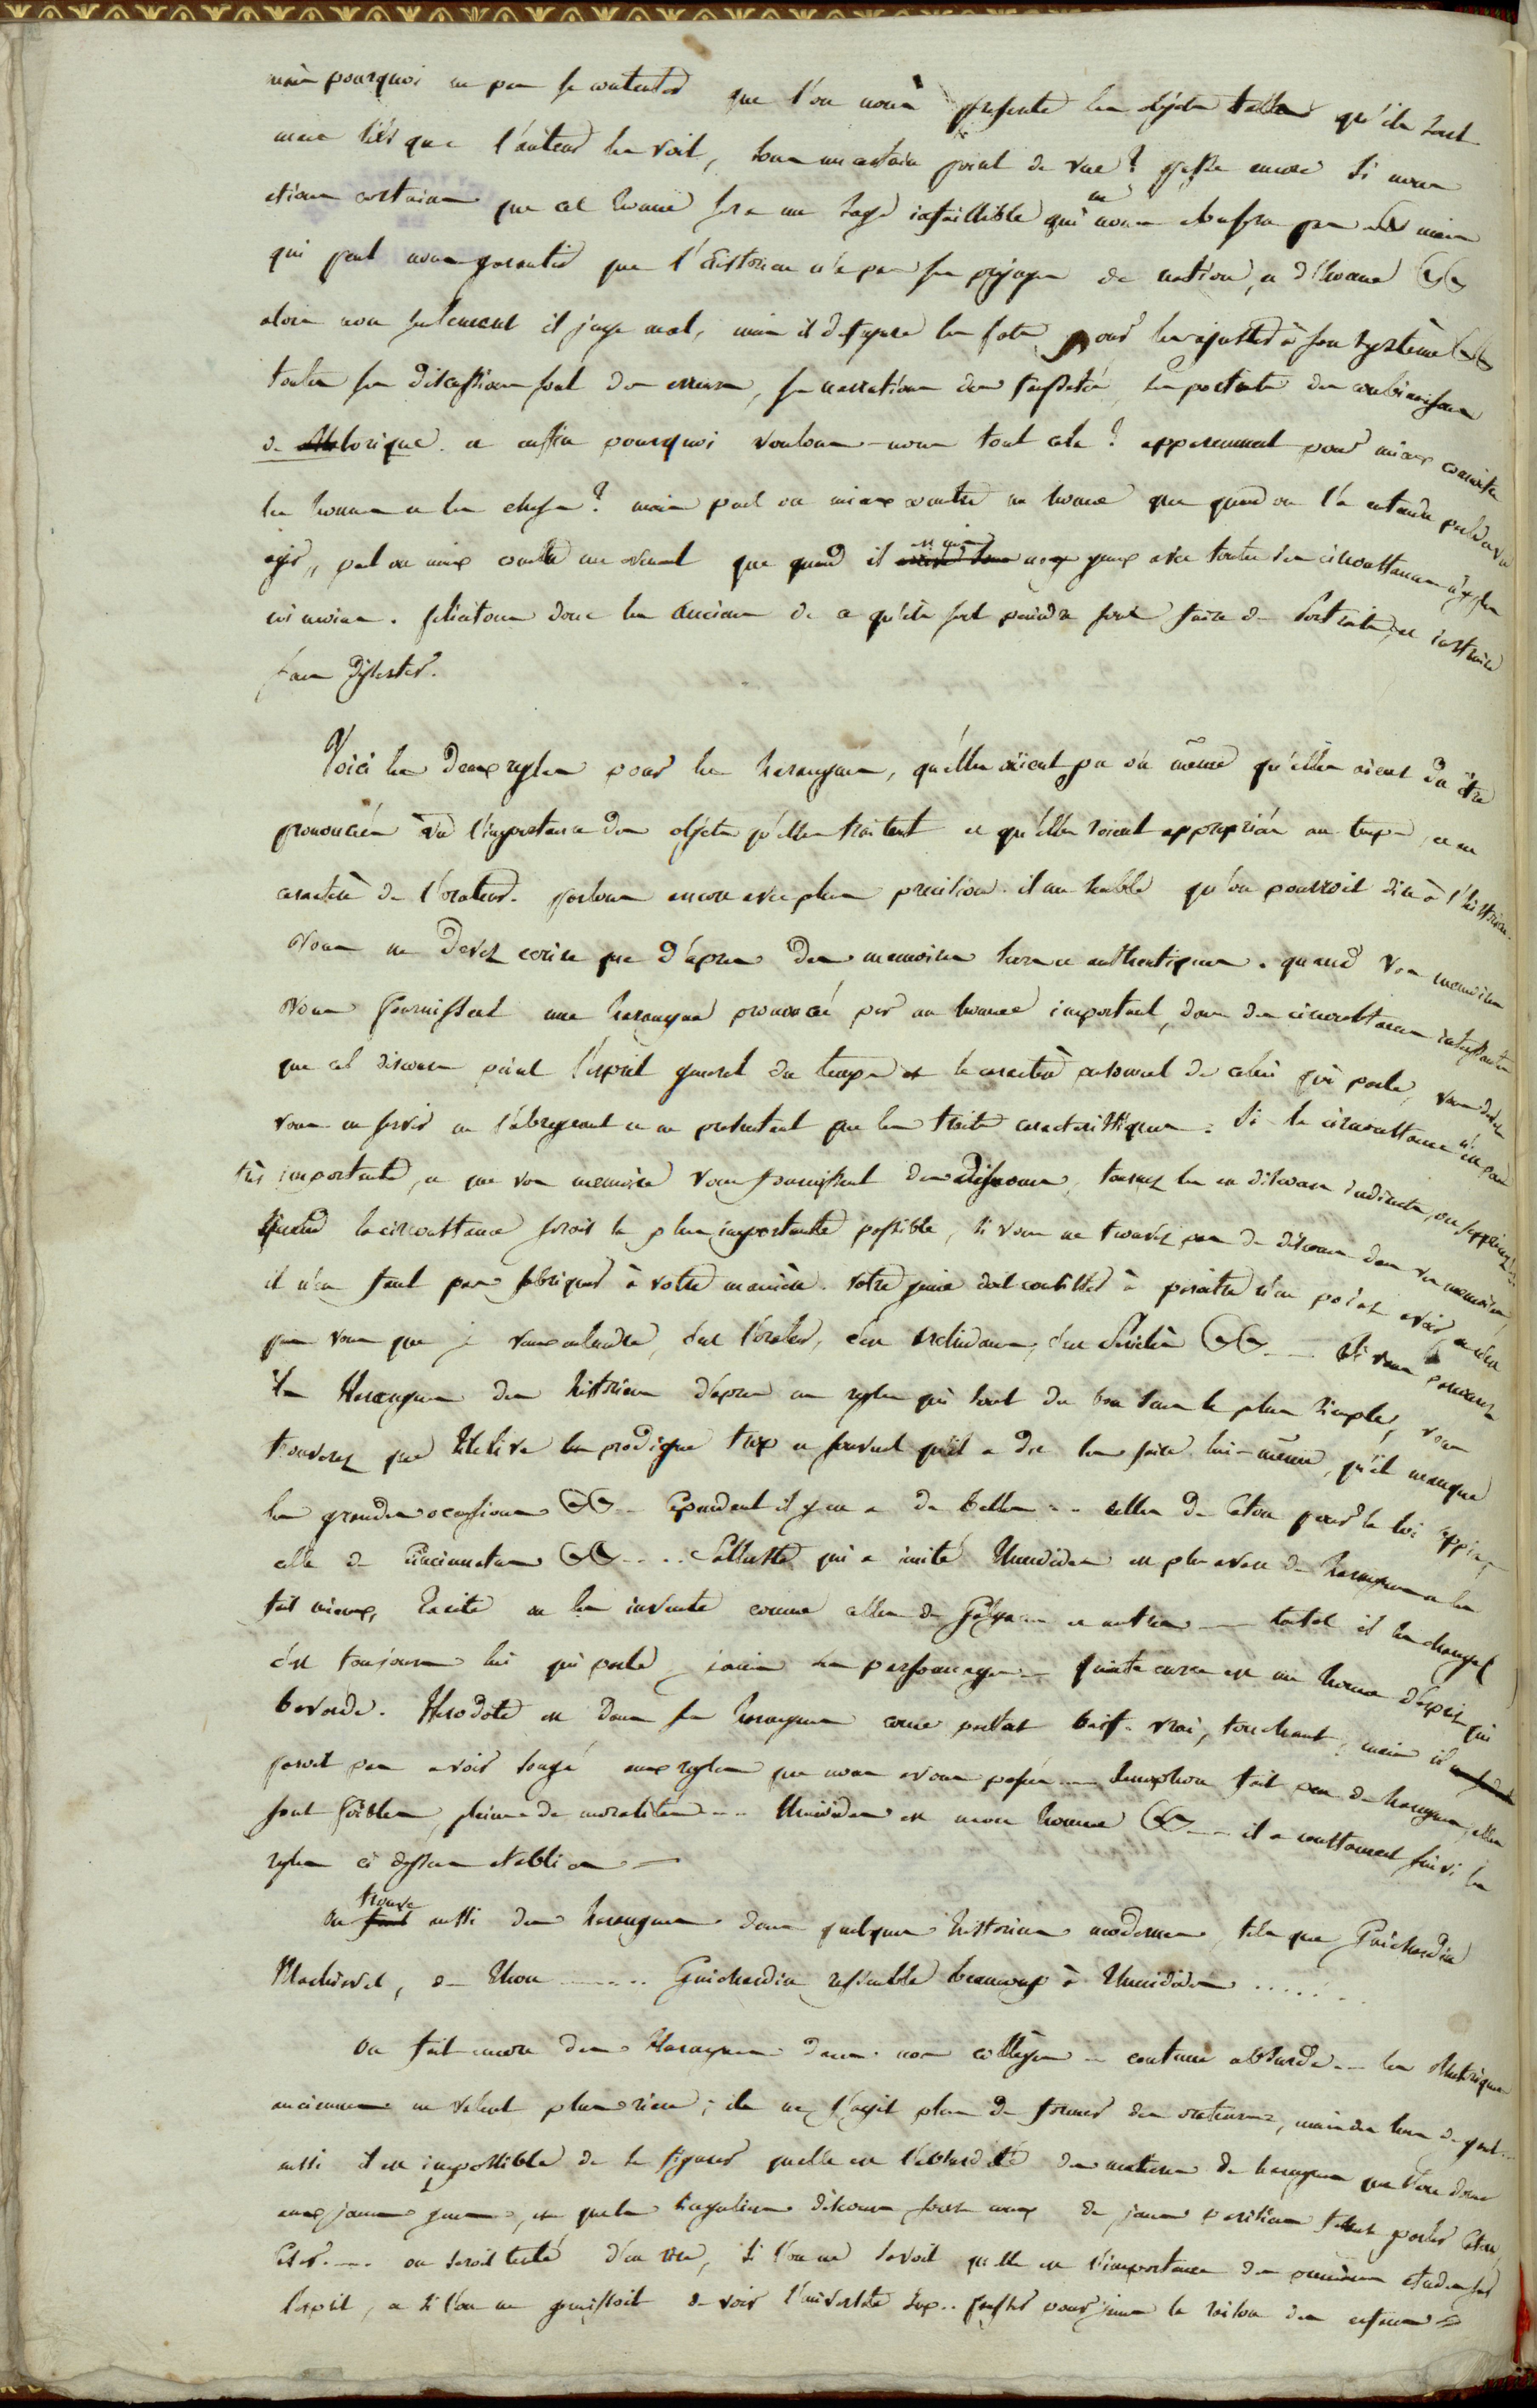 mais pourquoi ne pas se contenter que l'on nous presente les objets tels qu'ils sont
mais tels que l'auteur les voit, sous un certain point de vue? passe encore si nous
etions certains que cet homme sera un sage infaillible qui ne nous abusera pas mais
qui peut nous garantir que l'historien n'a pas ses prejugés de nation, et d'homme &&
alors non seulement il juge mal, mais il defigure les faits pour les ajuster à son systeme &&
toutes ses discussions sont des erreurs, ses narrations des faussetés, ses portraits des combinaisons
de rhetorique. et enfin pourquoi voulons-nous tout cela? apparemment pour mieux connoitre
les hommes et les choses? mais peut on mieux connoitre un homme que quand on l'a entendu parler vu
agir, peut on mieux connoitre un evenement que quand il est mis sous nos yeux avec toutes ses circonstances
felicitons donc les anciens de ce qu'ils sont peindre sans faire de Portraits, et instruire
sans disserter.
Voici les deux regles pour les harangues, qu'elles aient pu ou même qu'elles aient du être
prononcées vu l'importance des objets qu'elles traitent et qu'elles soient appropriées au temps, et au
caractère de l'orateur. parlons encore avec plus precision. il me semble qu'on pourroit dire à l'historien.
Vous ne devez ecrire que d'apres des memoires surs et authentiques. quand vos memoires
Vous fournissent une harangue prononcée par un homme important, dans des circonstances interessantes
que cet discours peint l'esprit general du temps et le caractère personnel de celui qui parle, vous devez
vous en servir en l'abregeant et en presentant que les traits caracteristiques. Si la circonstance n'est pas
très importante, et que vos memoires vous fournissent des discours, tournez les en discours indirects, ou supprimez les
Quand la circonstance seroit la plus importante possible, si vous ne trouvez pas de discours dans vos memoires,
il n'en faut pas fabriquer à votre manière. votre genie doit consister à paroitre n'en point avoir, ce n'est
pas vous que je veux entendre, c'est l'orateur, c'est && Si vous parcourez
les Harangues des historiens d'apres ces regles qui sont du bon sens le plus simple, vous
trouverez que Tite live les prodigue trop et souvent qu'il a du les faire lui-même, qu'il manque
les grandes occasions && Cependant il y en a de belles.. celles de Caton pour la loi oppia,
celle de Cincinnatus && .... Salluste qui a imité Thucidide est plus avare de harangues et les
fait mieux, Tacite ou les invente comme celles de Galgacus et autres — tantot il les change
c'est toujours lui qui parle jamais ses personnages — quinte curce est un homme d'esprit qui
bavarde. Herodote est dans ses harangues comme partout naif, vrai, touchant, mais il
paroit pas avoir songé aux regles que nous avons posées — Xenophon fait peu de harangues, elles
sont foibles, pleines de moralités ... Thucidide est mon homme && il a constamment suivi les
regles ci dessus etablies —
on trouve aussi des harangues dans quelques historiens modernes, tels que Guichardin
Machiavel, de Thou ....... Guichardin ressemble beaucoup à Thucidide ......
on fait encore des Harangues dans nos collèges .. coutume absurde... les Rhetoriques
anciennes ne valent plus rien; il ne s'agit plus de former des orateurs, mais des
aussi il est impossible de se figurer quelle est l'absurdité des matieres de harangues que l'on donne
aux jeunes gens, et quels singuliers discours font ceux de jeunes faisant parler Caton,
Cesar .... on seroit tenté d'en rire, si l'on ne savoit quelle est l'importance des premieres etudes sur
l'esprit, et si l'on ne gemissoit de voir l'université la raison des enfans